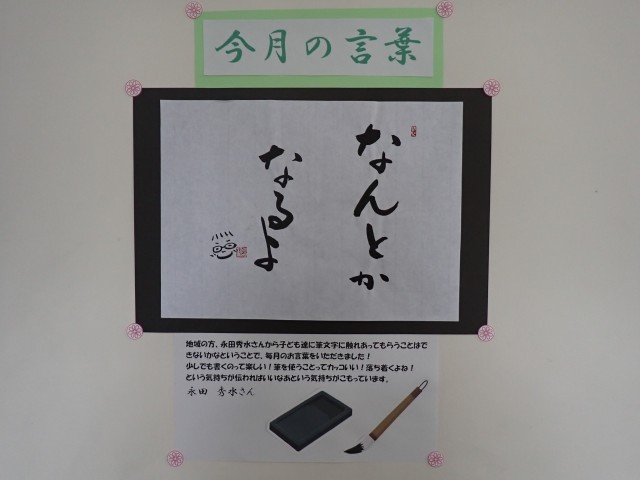 今月の言葉
なんとか
なるよ
地域の方、永田秀水さんから子ども達に筆文字に触れあってもらうことはで
きないかなということで、毎月のお言葉をいただきました！
少しでも書くのって楽しい！筆を使うことってカッコいい！落ち着くよね！
という気持ちが伝わればいいなあという気持ちがこもっています。
永田　秀水さん